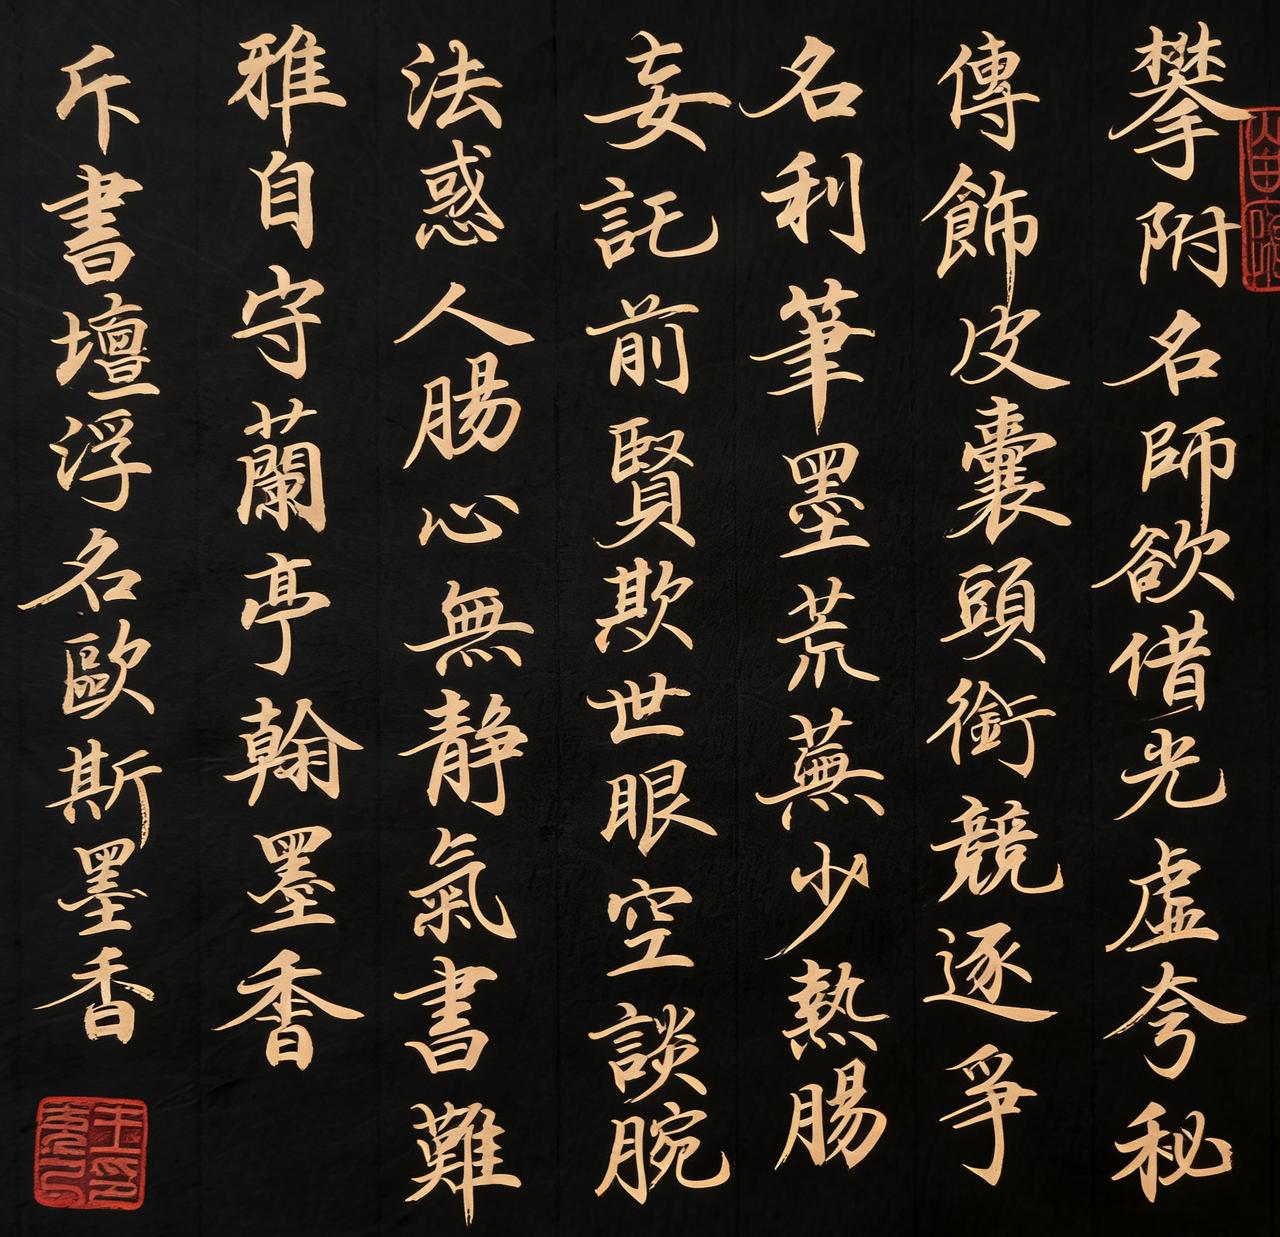 攀附名師欲借光虛夸秘
傳飾皮囊頭銜競逐爭
名利筆墨荒蕪少熱腸
妄託前賢欺世眼空談腕
法惑人腸心無靜氣書難
雅自守蘭亭翰墨香
斥書壇浮名歐斯墨香